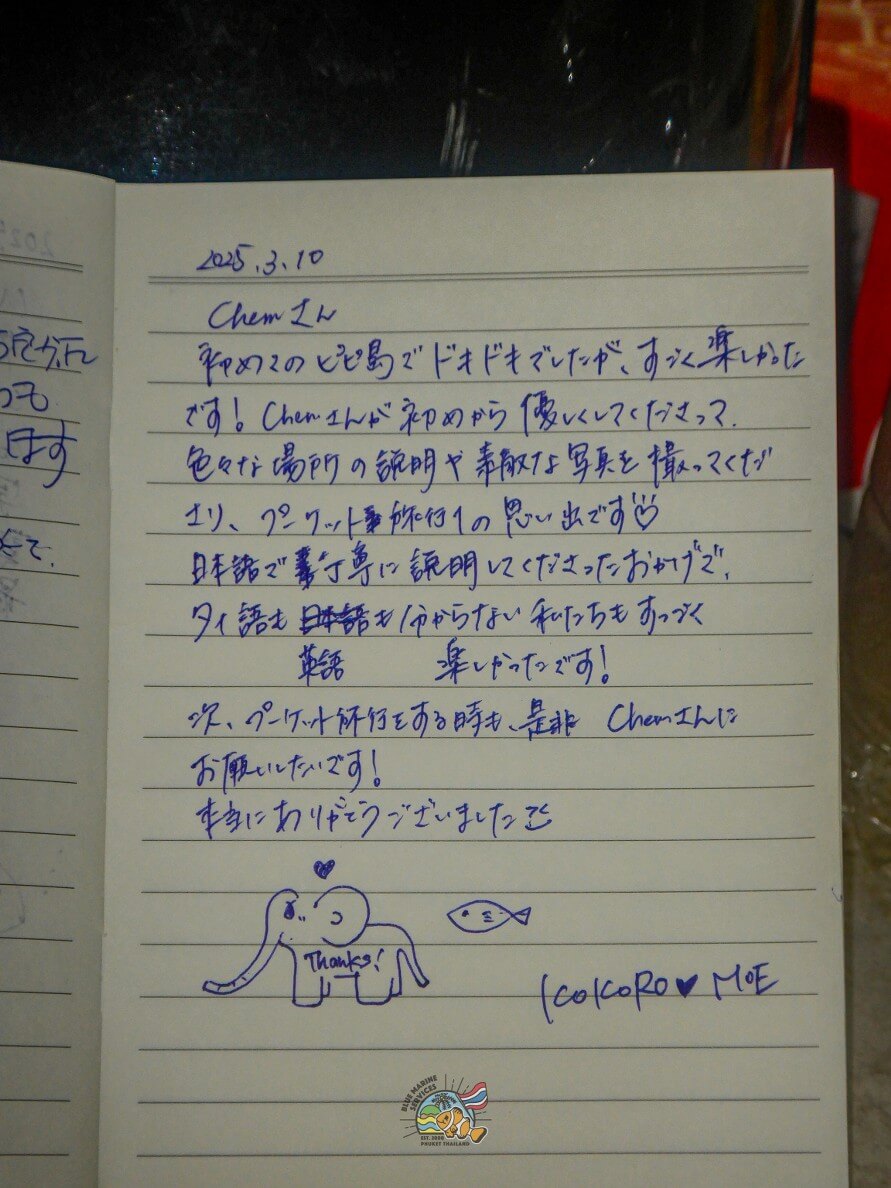 2025.3.10
Chemさん
初めてのピピ島でドキドキでしたが、すごく楽しかった
です! Chemさんが初めから優しくしてくださって、
色々な場所の説明や素敵な写真を撮ってくだ
さり、プーケット旅行1の思い出です
日本語で丁寧に説明してくださったおかげで、
タイ語も 日本語も分からない私たちもすっごく
英語 楽しかったです!
次、プーケット旅行をする時も、是非 Chemさんに
お願いしたいです!
本当にありがとうございました
Thanks!
KOKORO♥MOE
BLUE MARINE SERVICES
EST. 2008
PHUKET THAILAND